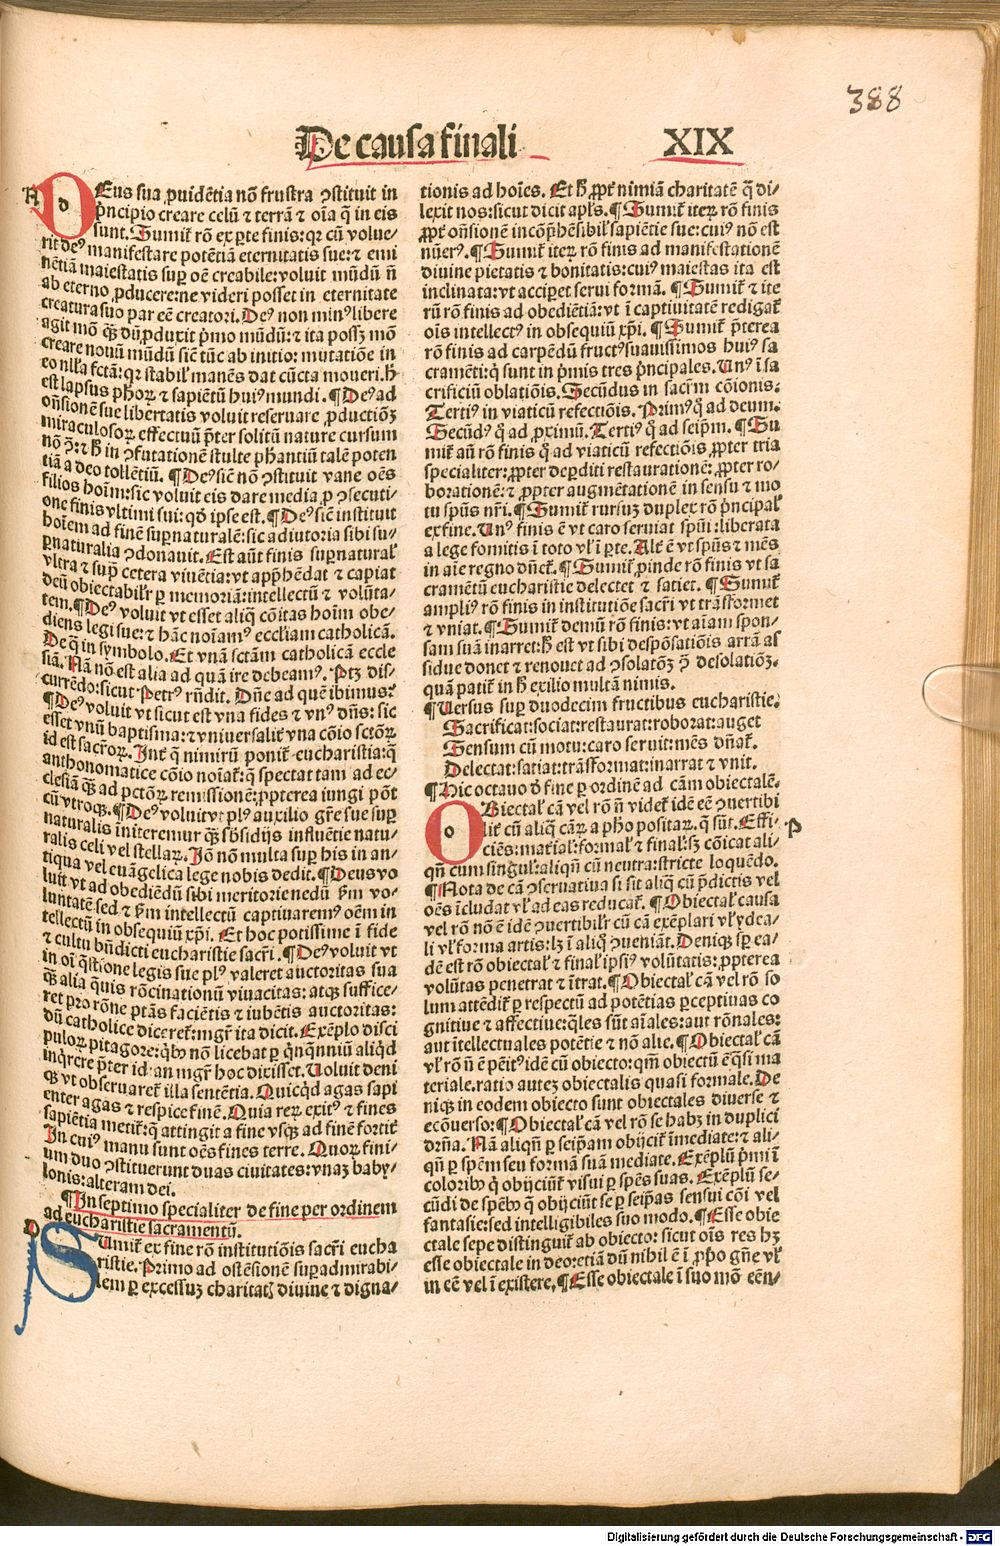 388
De causa finali XIX
A
DEus sua ꝓuidētia nō frustra ꝯstituit in
pͥncipio creare celū ⁊ terrā ⁊ oīa q̄ in eis
sunt. Sumiť rō ex ꝑte finis: qꝛ cū volue⸗
rit deꝰ manifestare potētiā eternitatis sue: ⁊ emi
nētiā maiestatis suꝑ oē creabile: voluit mūdū nō
ab eterno ꝓducere: ne videri posset in eternitate
creatura suo par eē creatori. Deꝰ non minꝰ libere
agit mō q̄ȝ dū ꝓduxit pͥmo mūdū: ⁊ ita possȝ mō
creare nouū mūdū sic̄ tūc ab initio: mutatiōe in
eo nlla fctā: qꝛ stabil̓ manēs dat cūcta moueri. h̄
est lapsus ph̄oꝝ ⁊ sapiētū huiꝰ mundi. ¶ Deꝰ ad
on̄sionē sue libertatis voluit reseruare ꝓductiōȝ
miraculosoꝝ effectuū pͥter solitū nature cursum
nō ꝯ̄: ⁊ h̄ in ꝯfutationē stulte ph̄antiū talē poten
tiā a deo tollētiū. ¶ Deꝰ sic̄ nō ꝯstituit vane oēs
filios hoīm: sic voluit eis dare media ꝓ ꝯsecuti⸗
one finis vltimi sui: qd̓ ipse est. ¶ Deꝰ sic̄ instituit
hoīem ad finē suꝑnaturalē: sic adiutoria sibi su⸗
ꝑnaturalia ꝯdonauit. Est aūt finis suꝑnatural̓
vltra ⁊ supͣ cetera viuētia: vt app̄hēdat ⁊ capiat
deū obiectabilr̓ ꝑ memoriā: intellectū ⁊ volūta⸗
tem. ¶ Deꝰ voluit vt esset aliq̄ cōitas hoīm obe⸗
diens legi sue: ⁊ hāc noīamꝰ eccl̓iam catholicā.
De q̄ in symbolo. Et vnā sctām catholicā eccle
siā. Nā nō est alia ad quā ire debeamꝰ. Ptȝ dis⸗
currēdo: sicut Petrꝰ rn̄dit. Dn̄e ad quē ibimus:
¶ Deꝰ voluit vt sicut est vna fides ⁊ vnꝰ dn̄s: sic
esset vnū baptisma: ⁊ vniuersaliť vna cōio sctōꝝ
id est sacroꝝ. Int̄ q̄ nimirū poniť eucharistia: q̄
anthonomatice cōio noīať: q̄ spectat tam ad ec⸗
clesiā q̄ȝ ad pctōꝝ remissionē: ꝓpterea iungi pōt
cū vtroqȝ. ¶ Deꝰ voluit vt plꝰ auxilio gr̄e sue suꝑ
naturalis īniteremur q̄ȝ sb̓sidijs influētie natu⸗
ralis celi vel stellaꝝ. Iō nō multa suꝑ his in an⸗
tiqua vel euāgelica lege nobis dedit. ¶ Deus vo
luit vt ad obediēdū sibi meritorie nedū ẞm vo⸗
luntatē sed ⁊ ẞm intellectū captiuaremꝰ oēm in
tellectū in obsequiū xp̄i. Et hoc potissime ī fide
⁊ cultu bn̄dicti eucharistie sacr̄i. ¶ Deꝰ voluit vt
in oī q̄stione legis sue plꝰ valeret auctoritas sua
q̄ȝ alia quis rōcinationū viuacitas: atqȝ suffice⸗
ret pro rōne ptās faciētis ⁊ iubētis auctoritas:
dū catholice dicereť: mgr̄ ita dicit. Exēplo disci
puloꝝ pitagore: qb̓ꝰ nō licebat ꝑ qͥnqn̄niū aliqͥd
inqͥrere pͥter id: an mgr̄ hoc dixisset. Voluit deni
qȝ vt obseruareť illa sentētia. Quicqͥd agas sapi
enter agas ⁊ respice finē. Quia reꝝ exitꝰ ⁊ fines
sapiētia metiť: q̄ attingit a fine vsqȝ ad finē fortiť
In cuiꝰ manu sunt oēs fines terre. Quoꝝ fini⸗
um duo ꝯstituerunt duas ciuitates: vnaȝ baby⸗
lonis: alteram dei.
¶ In septimo specialiter de fine per ordinem
ad eucharistie sacramentū.
SUmiť ex fine rō institutiōis sacr̄i eucha
ristie. Primo ad ostēsionē suꝑadmirabi⸗
lem ꝑ excessuȝ charitatȝ diuine ⁊ digna⸗
tionis ad hoīes. Et h̄ ꝓpť nimiā charitatē q̄ di⸗
lexit nos: sicut dicit apl̓s. ¶ Sumiť iteꝝ rō finis
ꝓpť on̄sionē incōp̄hēsibil̓ sapiētie sue: cuiꝰ nō est
nūerꝰ. ¶ Sumiť iteꝝ rō finis ad manifestationē
diuine pietatis ⁊ bonitatis: cuiꝰ maiestas ita est
inclinata: vt acciꝑet serui formā. ¶ Sumiť ⁊ ite
rū rō finis ad obediētiā: vt ī captiuitatē redigať
oīs intellectꝰ in obsequiū xp̄i. ¶ Sumiť pͥterea
rō finis ad carpēdū fructꝰ suauissimos huiꝰ sa
cramēti: q̄ sunt in pͥmis tres pͥncipales. Vnꝰ ī sa
crificiū oblatiōis. Secūdus in sacrm̄ cōionis.
Tertiꝰ in viaticū refectiōis. Primꝰ q̄ ad deum.
Secūdꝰ q̄ ad ꝓximū. Tertiꝰ q̄ ad seip̄m. ¶ Su
miť aūt rō finis q̄ ad viaticū refectiōis ꝓpter tria
specialiter: ꝓpter deꝑditi restaurationē: ꝓpter ro⸗
borationē: ⁊ ꝓpter augmētationē in sensu ⁊ mo
tu spūs nr̄i. ¶ Sumiť rursuȝ duplex rō pͥncipal̓
ex fine. Vnꝰ finis ē vt caro seruiat spūi: liberata
a lege fomitis ī toto vl̓ ī ꝑte. Alť ē vt spūs ⁊ mēs
in aīe regno dn̄eť. ¶ Sumiť ꝓinde rō finis vt sa
cramētū eucharistie delectet ⁊ satiet. ¶ Sumiť
ampliꝰ rō finis in institutiōe sacr̄i vt trāsformet
⁊ vniat. ¶ Sumiť demū rō finis: vt aīam spon⸗
sam suā inarret: h̄ est vt sibi despōsatiōis arrā as
sidue donet ⁊ renouet ad ꝯsolatōȝ ꝯ̄ desolatiōȝ.
quā patiť in h̄ exilio multā nimis.
¶ Versus suꝑ duodecim fructibus eucharistie.
Sacrificat: sociat: restaurat: roborat: auget
Sensum cū motu: caro seruit: mēs dn̄ať.
Delectat: satiat: trāsformat: inarrat ⁊ vnit.
¶ Hic octauo d̓ fine ꝑ ordinē ad cām obiectalē.
OBiectal̓ cā vel rō nō videť idē eē ꝯuertibi
liť cū aliq̄ cāꝝ a ph̄o positaꝝ. q̄ sūt. Effi⸗
P
ciēs: mat̓ial̓: formal̓ ⁊ final̓: sȝ cōicat ali⸗
qn̄ cum singul̓: aliqn̄ cū neutra: stricte loquēdo.
¶ Nota de cā ꝯseruatiua si sit aliq̄ cū pͥdictis vel
oēs īcludat vl̓ ad eas reducať. ¶ Obiectal̓ causa
vel rō nō ē idē ꝯuertibilr̓ cū cā exēplari vl̓ ydea⸗
li vl̓ forma artis: lȝ ī aliq̄ ꝯueniāt. Deniqȝ sꝑ ea⸗
dē est rō obiectal̓ ⁊ final̓ ipsiꝰ volūtatis: ꝓpterea
volūtas penetrat ⁊ ītrat. ¶ Obiectal̓ cā vel rō so
lum attēdiť ꝑ respectū ad potētias ꝑceptiuas co
gnitiue ⁊ affectiue: q̄les sūt aīales: aut rōnales:
aut ītellectuales potētie ⁊ nō alie. ¶ Obiectal̓ cā
vl̓ rō nō ē pēitꝰ idē cū obiecto: qm̄ obiectū ē q̄si ma
teriale. ratio autez obiectalis quasi formale. De
niqȝ in eodem obiecto sunt obiectales diuerse ⁊
ecōuerso: ¶ Obiectal̓ cā vel rō se habȝ in duplici
dr̄ña. Nā aliqn̄ ꝑ seip̄am obijciť īmediate: ⁊ ali⸗
qn̄ ꝑ spēm seu formā suā mediate. Exēplū pͥmi ī
coloribꝰ q̄ obijciūť visui ꝑ spēs suas. Exēplū se⸗
cūdi de spēbꝰ q̄ obijciūť se ꝑ seip̄as sensui cōi vel
fantasie: sed intelligibiles suo modo. ¶ Esse obie
ctale sepe distinguiť ab obiecto: sicut oīs res hȝ
esse obiectale in deo: etiā dū nihil ē ī ꝓpͥo gn̄e vl̓
in eē vel ī existere. ¶ Esse obiectale ī suo mō eēn⸗
Digitalisierung gefördert durch die Deutsche Forschungsgemeinschaft - DFG